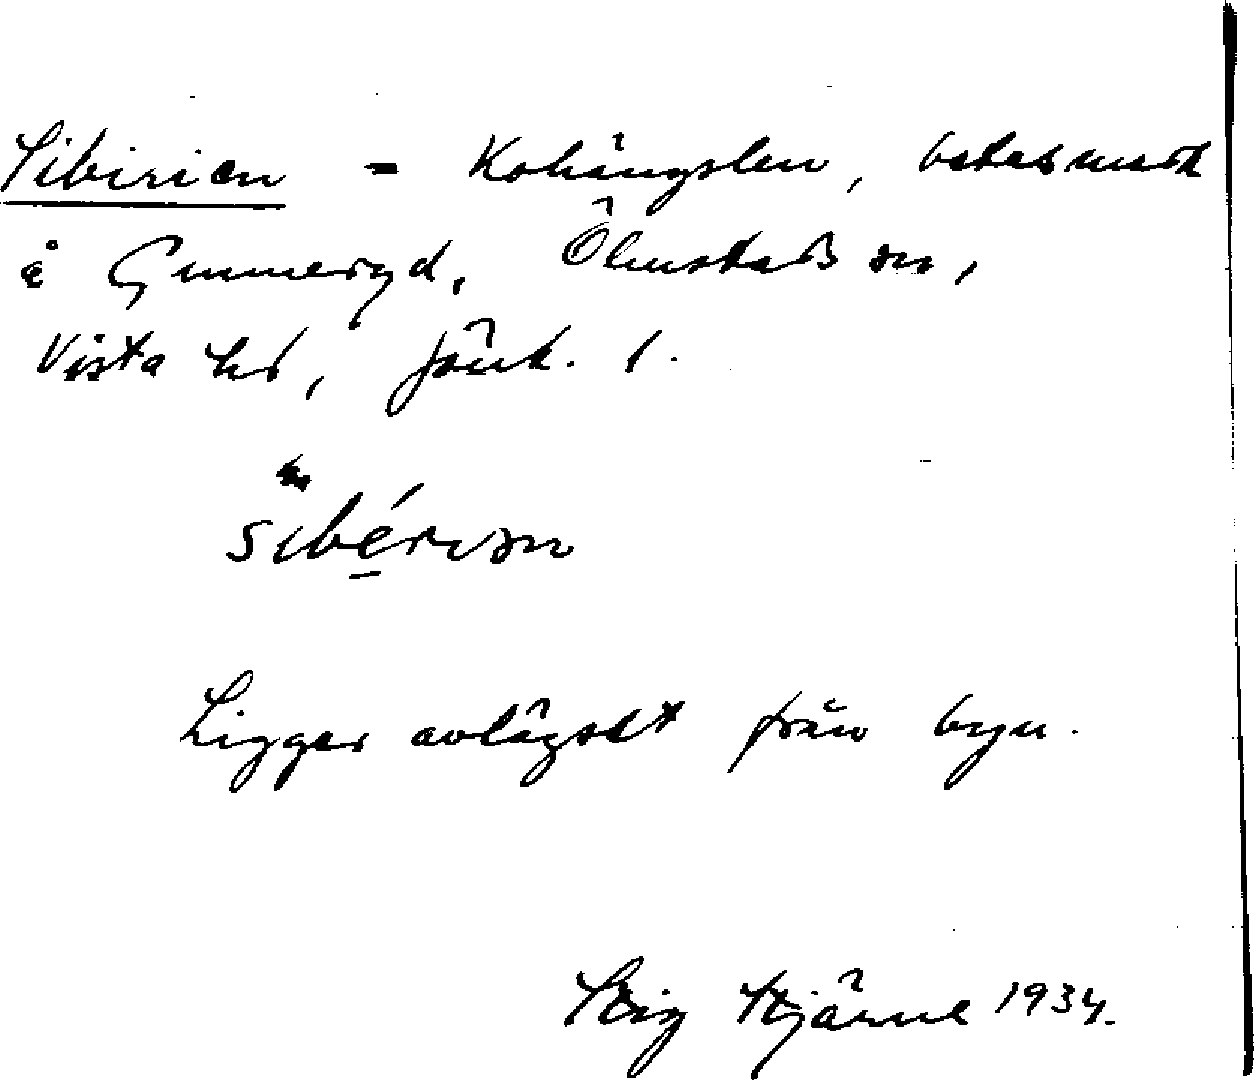 Sibirien = Kohängslen, betesmark
å Gummeryd, Ölmstads sn,
Vista hd, Jönk. l.
sibérien
Ligger avlägset från byn.
Stig Stjärne 1934.